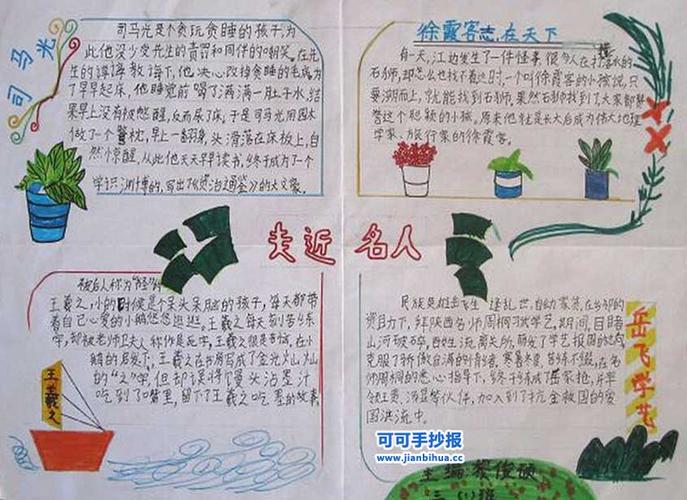 司马光
司马光是个贪玩贪睡的孩子,为
此他没少受先生的责罚和同伴的嘲笑。在先
生的谆谆教诲下,他决心改掉贪睡的毛病,为
了早早起床,他睡觉前喝了满满一肚子水,结
果早上没有被憋醒,反而尿了床,于是司马光用园木
做了个警枕,早上一翻身,头滑落在床板上,自
然惊醒,从此他天天早读书,终于成为了一个
学识渊博的,写出了《资治通鉴》的大文豪。
徐霞客志在天下
有一天,江边发生了一件怪事,很多人在打落水的
石狮,却怎么也找不着,这时,一个叫徐霞客的小孩说,只
要溯而上,就能找到石狮,果然石狮找到了大家都赞
誉这个聪颖的小孩,原来他就是长大后成为伟大地理
学家、旅行家的徐霞客。
走近名人
王羲之
被后人称为
王羲之,小的时候是个呆头呆脑的孩子,每天都带
着自己心爱的小鹅悠悠逛逛。王羲之每天刻苦练
字,却被老师卫夫人称作是死字,王羲之很是苦恼,在小
鹅的启发下,王羲之在书房写成了金光灿灿
的“之”字,但却误将馒头沾墨汁
吃到了嘴里,留下了王羲之吃墨的故事。
岳飞学艺
民族英雄岳飞生逢乱世,自幼家贫,在乡邻的
资助下,拜陕西名师周桐习武学艺,期间,目睹
山河破碎,百姓流离失所,萌发了学艺报国的志
克服了骄傲自满的情绪。寒暑冬夏,苦练不缀,在名
师周桐的悉心指导下,终于练成了岳家枪,并率
领王贵,汤显等伙伴,加入到了抗金救国的爱
国洪流中。
可可手抄报
www.jianbihua.cc
主编:蔡俊硕
三(1)班